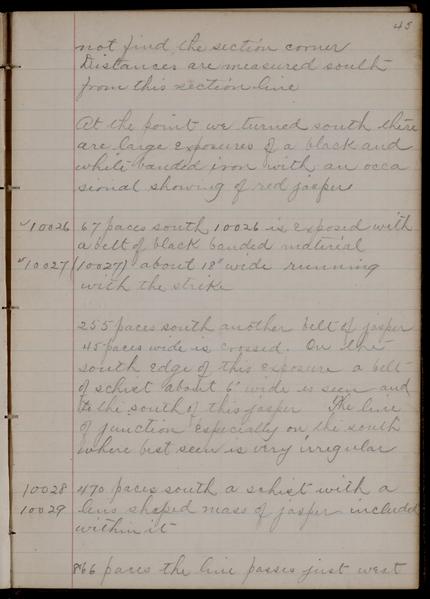 45
not find the section corner
Distances are measured south
from this section line
At the point we turned south there
are large exposures of a black and
white banded iron with an occa
sional showing of red jasper
10026 67 paces south 10026 is exposed with
a belt of black banded material
10027 (10027) about 18" wide running
with the strike
255 paces south another belt of jasper
45 paces wide is crossed. On the
south edge of this exposure a belt
of schist about 6' wide is seen and
to the south of this jasper The line
of junction especially on the south
where best seen is very irregular
10028 470 paces south a schist with a
10029 lens shaped mass of jasper included
within it
866 paces the line passes just west